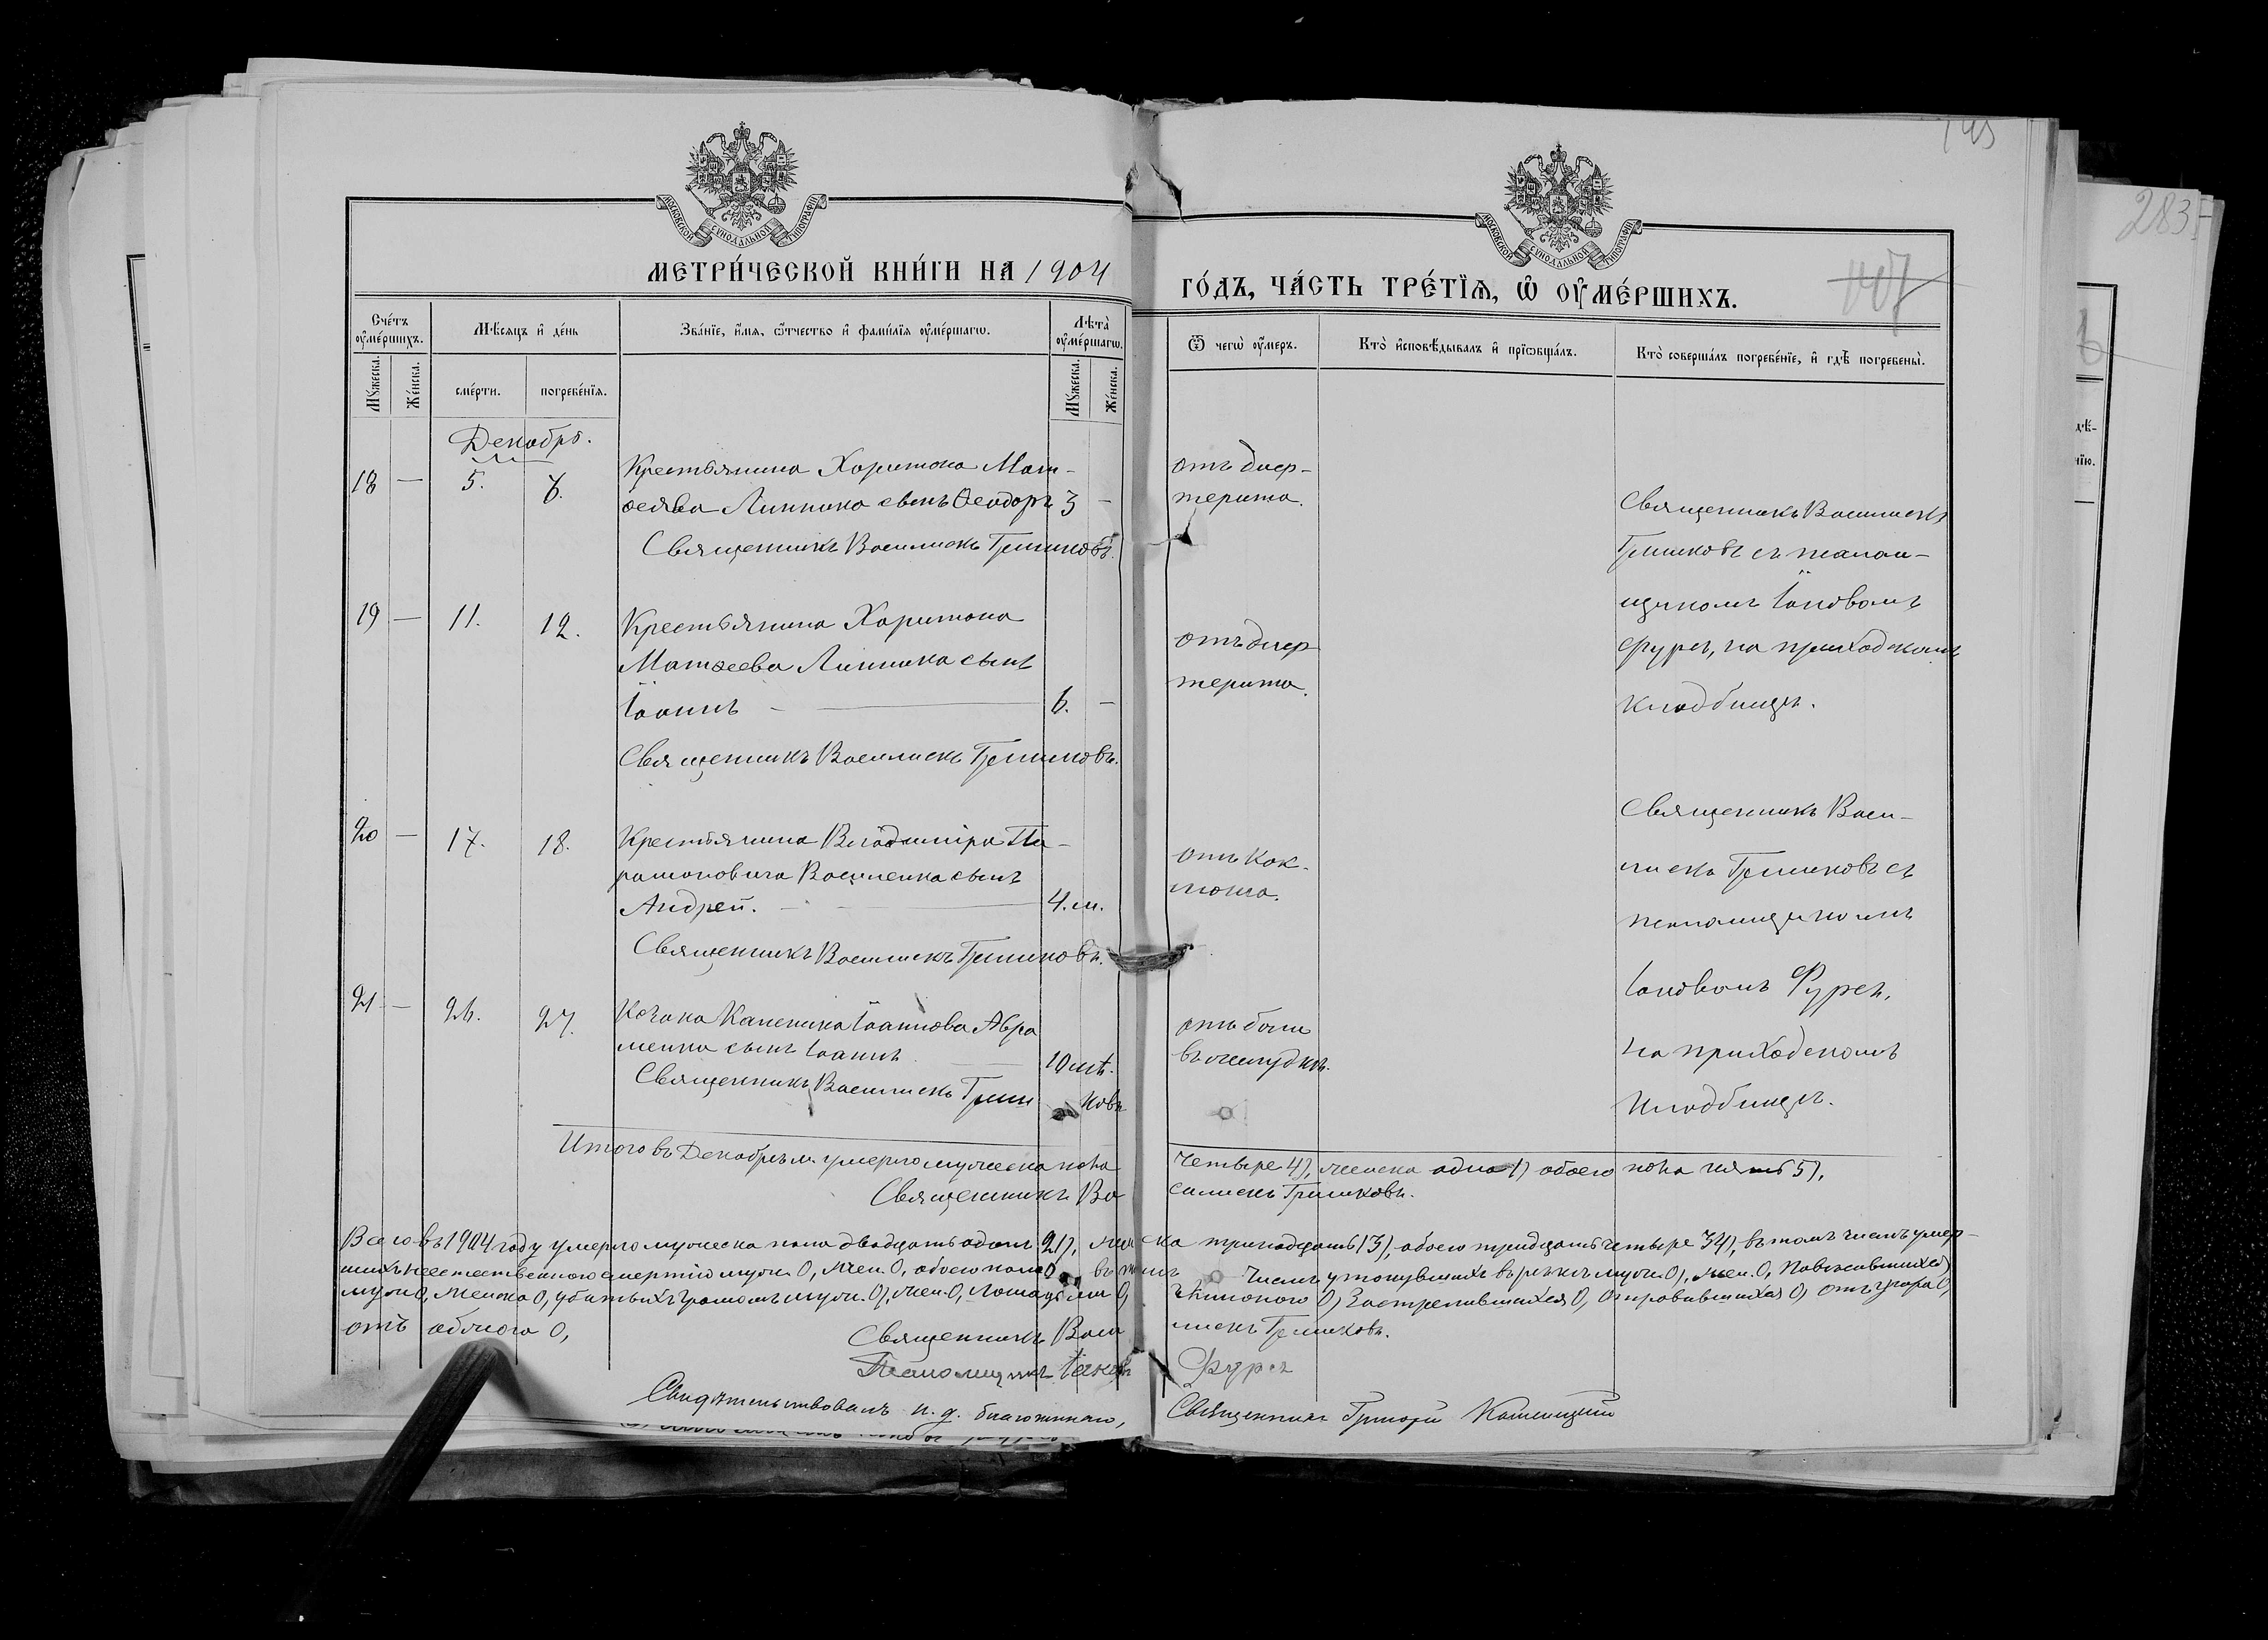 745
283
МОСКОВСКОЙ СѴНОДАЛЬНОЙ ТИПОГРАФІИ
МОСКОВСКОЙ СѴНОДАЛЬНОЙ ТИПОГРАФІИ
МЕТРИ́ЧЕСКОЙ КНИ́ГИ НА 1904
ГО́ДЪ, ЧА́СТЬ ТРЕ́ТІѦ, Ѡ҆ ОУ҆МЕ́РШИХЪ.
Сче́тъ оу҆ме́ршихъ.
Мѣсяцъ и҆ де́нь
Зва́нїе, и҆́мя, ѻ҆́тчество и҆ фами́лїя оу҆ме́ршагѡ.
Лѣта̀ оу҆ме́ршагѡ.
Ѿ чегѡ̀ оу҆́меръ.
Кто̀ и҆сповѣ́дывалъ и҆ прїѡбща́лъ.
Кто̀ соверша́лъ погребе́нїе, и҆ гдѣ̀ погребены̀.
Му́жеска.
Же́нска.
сме́рти.
погребе́нїя.
Му́жеска.
Же́нска.
Декабрь.
18 — 5. 6. Крестьянина Харитона Мат-
ѳеева Линника сынъ Ѳеодоръ 3 —
Священникъ Василискъ Гришковъ.
отъ диф-
терита.
Священникъ Василискъ
Гришковъ съ псалом-
щикомъ Іаковомъ
Фурсъ, на приходскомъ
кладбищѣ.
19 — 11. 12. Крестьянина Харитона
Матѳеева Линника сынъ
Іоаннъ — 6. —
Священникъ Василискъ Гришковъ.
отъ диф
терита.
20 — 17. 18. Крестьянина Владиміра Па-
рамоновича Василенка сынъ
Андрей. — 4. м.
Священникъ Василискъ Гришковъ.
отъ кок-
люша.
Священникъ Васи-
лискъ Гришковъ съ
псаломщикомъ
Іаковомъ Фурсъ,
на приходскомъ
кладбищѣ.
21 — 26. 27. Козака Каленика Іоаннова Авра
менка сынъ Іоаннъ 10 лѣт.
Священникъ Василискъ Гриш
ковъ
отъ боли
въ желудкѣ.
Итого въ Декабрѣ м. умерло мужеска пола четыре 4), женска одна 1) обоего пола пять 5).
Священникъ Василискъ Гришковъ.
Всего въ 1904 году умерло мужеска пола двадцать одинъ 21), женска тринадцать 13), обоего тридцать четыре 34), въ томъ числѣ умер-
шихъ неестественною смертію мужч. 0, жен. 0, обоего пола 0, въ томъ числѣ утонувшихъ въ рѣкѣ мужч. 0), жен. 0, Повѣсившихся
мужч. 0, женска 0, убитыхъ громомъ мужч. 0), жен. 0, лошадьми 0, Застрелившихся 0, Отравившихся 0, отъ угара 0,
отъ 0,
Священникъ Василискъ Гришковъ.
Псаломщикъ Іаковъ Фурсъ
Свидѣтельствовалъ и. д. благочиннаго, Священникъ Григорій